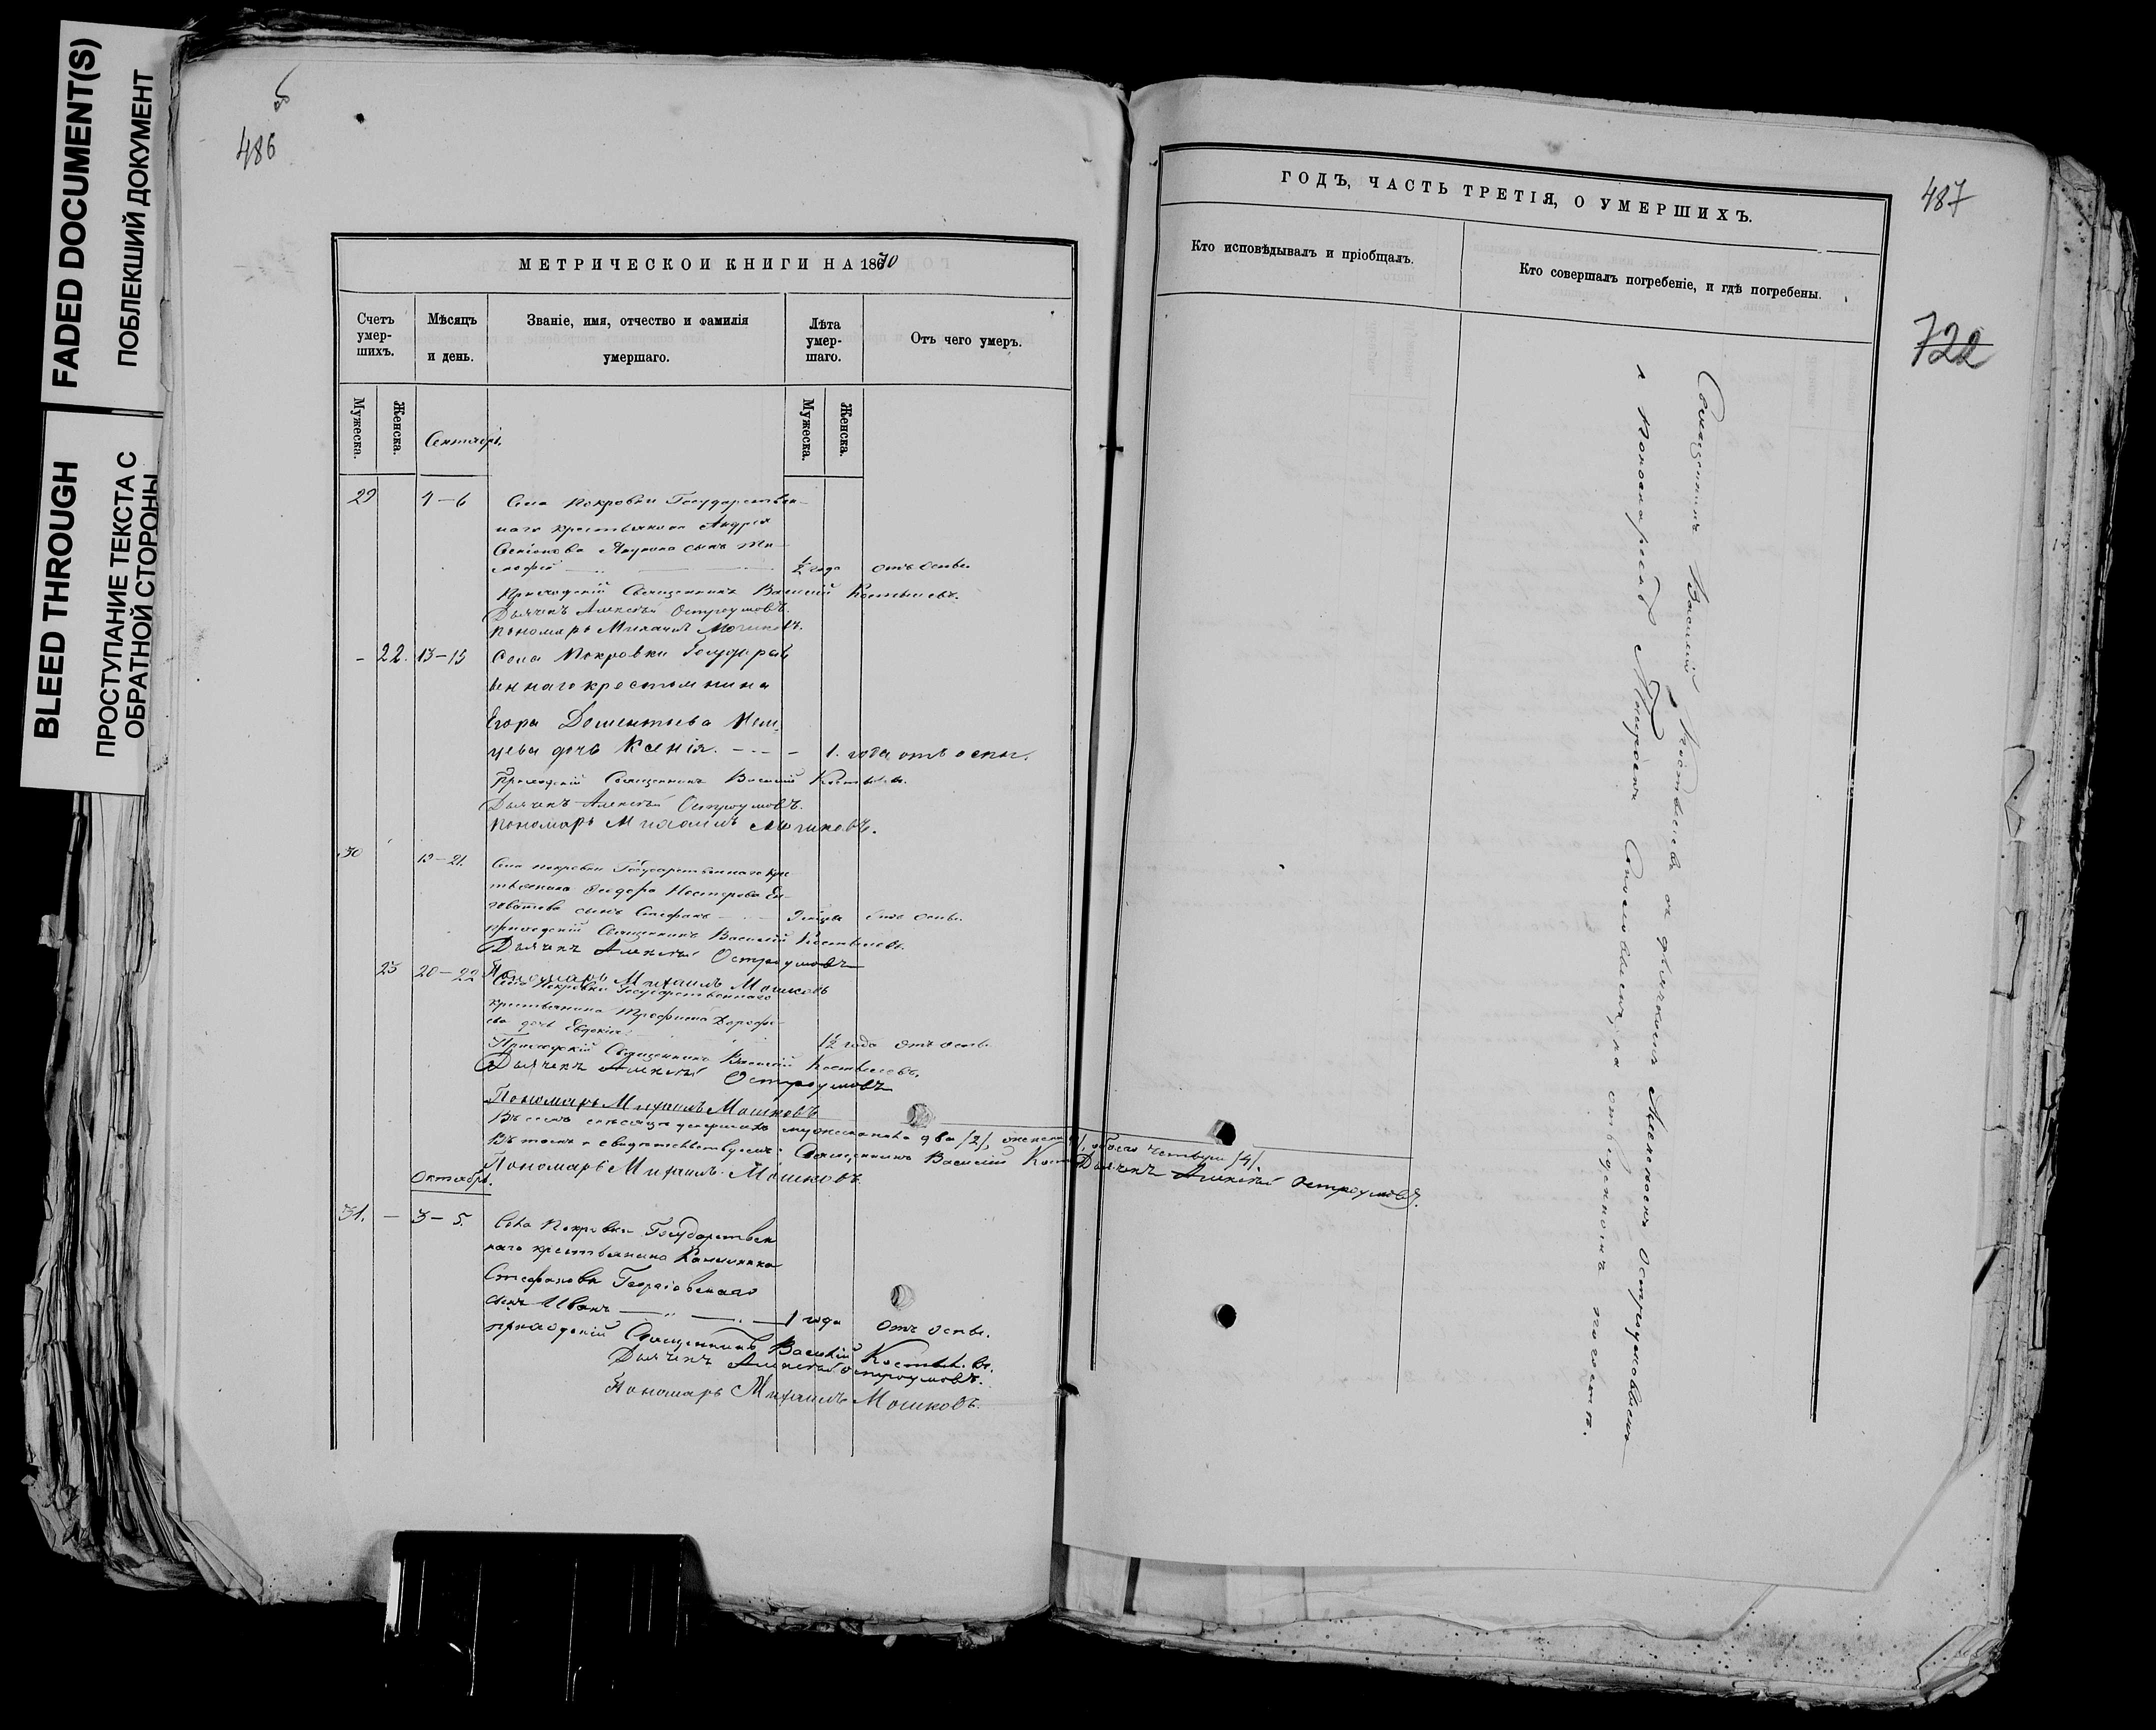 FADED DOCUMENT(S)
ПОБЛЕКШИЙ ДОКУМЕНТ
BLEED THROUGH
ПРОСТУПАНИЕ ТЕКСТА С
ОБРАТНОЙ СТОРОНЫ
486
МЕТРИЧЕСКОЙ КНИГИ НА 1870
Счетъ умер-шихъ.
Мѣсяцъ и день.
Званіе, имя, отчество и фамилія умершаго.
Лѣта умер-шаго.
Отъ чего умеръ.
Мужеска.
Женска.
Мужеска.
Женска.
Сентябрь.
29 4-6 Села Покровки Государствен-
наго крестьянина Андрея
сынъ Ти-
мофей ½ года отъ оспы.
Приходскій Священникъ Василій Костылевъ.
Дьячекъ Алексѣй Остроумовъ.
Пономарь Михаилъ Мошковъ.
- 22. 13-15 Села Покровки Государств
еннаго крестьянина
Егора Дементьева
дочь Ксенія. 1. года отъ оспы.
Приходскій Священникъ Василій Костылевъ.
Дьячекъ Алексѣй Остроумовъ.
Пономарь Михаилъ Мошковъ.
30 19-21. Села Покровки Государственнаго кре
стьянина Ѳедора Нестерова
сынъ Стефанъ отъ оспы.
приходскій Священникъ Василій Костылевъ.
Дьячекъ Алексѣй Остроумовъ
Пономарь Михаилъ Мошковъ
23 20-22 Села Покровки Государственнаго
крестьянина Трофима Дорофе-
ева дочь Евдокія. 1½ года отъ оспы.
Приходскій Священникъ Василій Костылевъ.
Дьячекъ Алексѣй Остроумовъ
Пономарь Михаилъ Мошковъ
Въ семъ мѣсяцѣ умершихъ мужеска пола два /2/, женска /2/, обоего четыре /4/.
Въ томъ и свидѣтельствуемъ: Священникъ Василій
Дьячекъ Алексѣй Остроумовъ.
Пономарь Михаилъ Мошковъ.
Октябрь.
31. - 3-5. Села Покровки Государствен
наго крестьянина
Стефанова Георгіевскаго
сынъ Иванъ 1 года отъ оспы.
приходскій Священникъ Василій Костылевъ.
Дьячекъ Алексѣй Остроумовъ.
Пономарь Михаилъ Мошковъ.
ГОДЪ, ЧАСТЬ ТРЕТІЯ, О УМЕРШИХЪ.
487
722
Кто исповѣдывалъ и пріобщалъ.
Кто совершалъ погребеніе, и гдѣ погребены.
Священникъ Василій Костылевъ съ дьячкомъ Алексѣемъ Остроумовымъ
и пономаремъ на отведенномъ погостѣ.